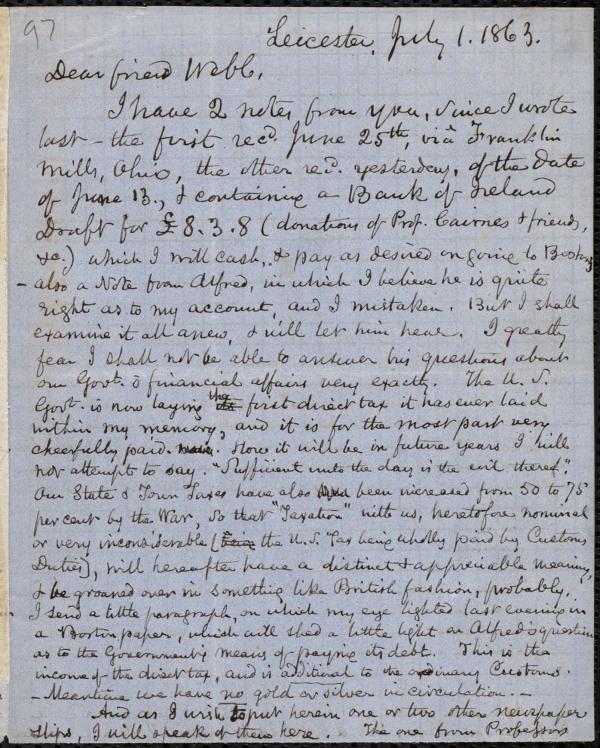 97
Leicester, July 1. 1863.
Dear friend Webb,
I have 2 notes from you, since I wrote
last – the first recd. June 25th, via Franklin
Mills, Ohio, the other recd. yesterday, of the date
of June 13., & containing a Bank of Ireland
Draft for £8.3.8 (donations of Prof. Cairnes & friends,
&c.) which I will cash, & pay as desired on going to Boston,
– also a Note from Alfred, in which I believe he is quite
right as to my account, and I mistaken. But I shall
examine it all anew, & will let him hear. I greatly
fear I shall not be able to answer his questions about
our Govt.'s financial affairs very exactly. The U. S.
Govt. is now laying the its first direct tax it has ever laid
within my memory, and it is for the most part very
cheerfully paid. How it will be in future years I will
not attempt to say. "Sufficient unto the day is the evil thereof."
Our State & Town Taxes have also been increased from 50 to 75
per cent by the War, so that "Taxation" with us, heretofore nominal
or very inconsiderable [the U.S. Tax being wholly paid by Customs
Duties], will hereafter have a distinct & appreciable meaning,
& be groaned over in something like British fashion, probably.
I send a little paragraph, on which my eye lighted last evening in
a Boston paper, which will shed a little light on Alfred's question
as to the Government's means of paying its debt. This is the
income of the direct tax, and is additional to the ordinary Customs.
– Meantime we have no gold or silver in circulation. –
And as I wish to put herein one or two other newspaper
slips, I will speak of them here. The one from Professor